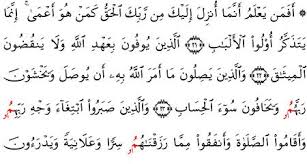 ۞ أَفَمَن يَعْلَمُ أَنَّمَا أُنزِلَ إِلَيْكَ مِن رَّبِّكَ ٱلْحَقُّ كَمَنْ هُوَ أَعْمَىٰٓ ۚ إِنَّمَا
يَتَذَكَّرُ أُو۟لُوا۟ ٱلْأَلْبَـٰبِ ۝٢١ ٱلَّذِينَ يُوفُونَ بِعَهْدِ ٱللَّهِ وَلَا يَنقُضُونَ
ٱلْمِيثَـٰقَ ۝٢٢ وَٱلَّذِينَ يَصِلُونَ مَا أَمَرَ ٱللَّهُ بِهِۦ أَن يُوصَلَ وَيَخْشَوْنَ
رَبَّهُمُۥ وَيَخَافُونَ سُوٓءَ ٱلْحِسَابِ ۝٢٣ وَٱلَّذِينَ صَبَرُوا۟ ٱبْتِغَآءَ وَجْهِ رَبِّهِمُۥ
وَأَقَامُوا۟ ٱلصَّلَوٰةَ وَأَنفَقُوا۟ مِمَّا رَزَقْنَـٰهُمُۥ سِرًّا وَعَلَانِيَةً وَيَدْرَءُونَ